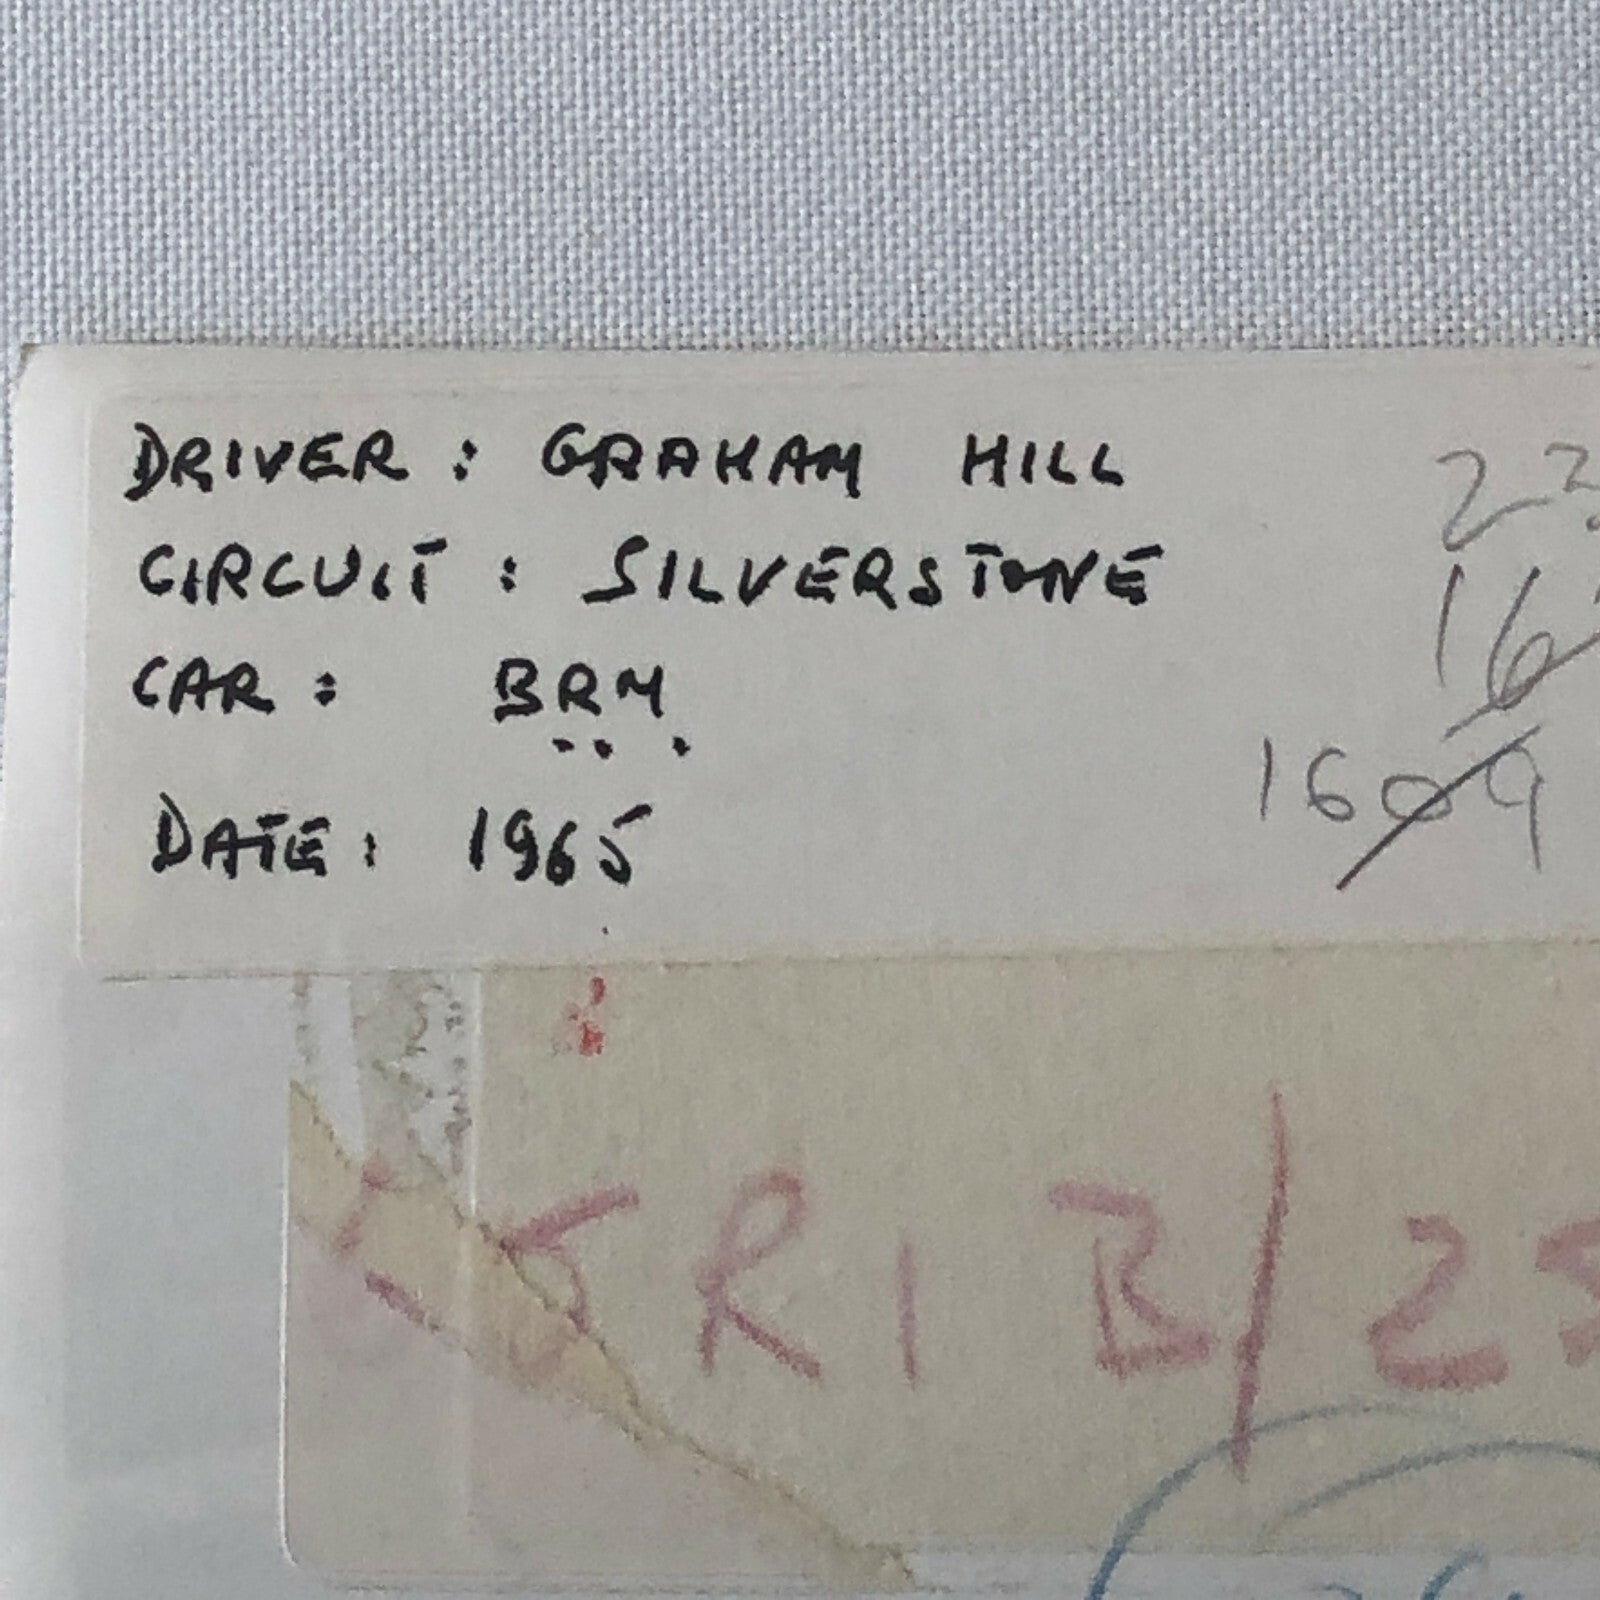 DRIVER : GRAHAM HILL
CIRCUIT : SILVERSTONE
CAR : BRM
DATE : 1965
1609
RIB/25